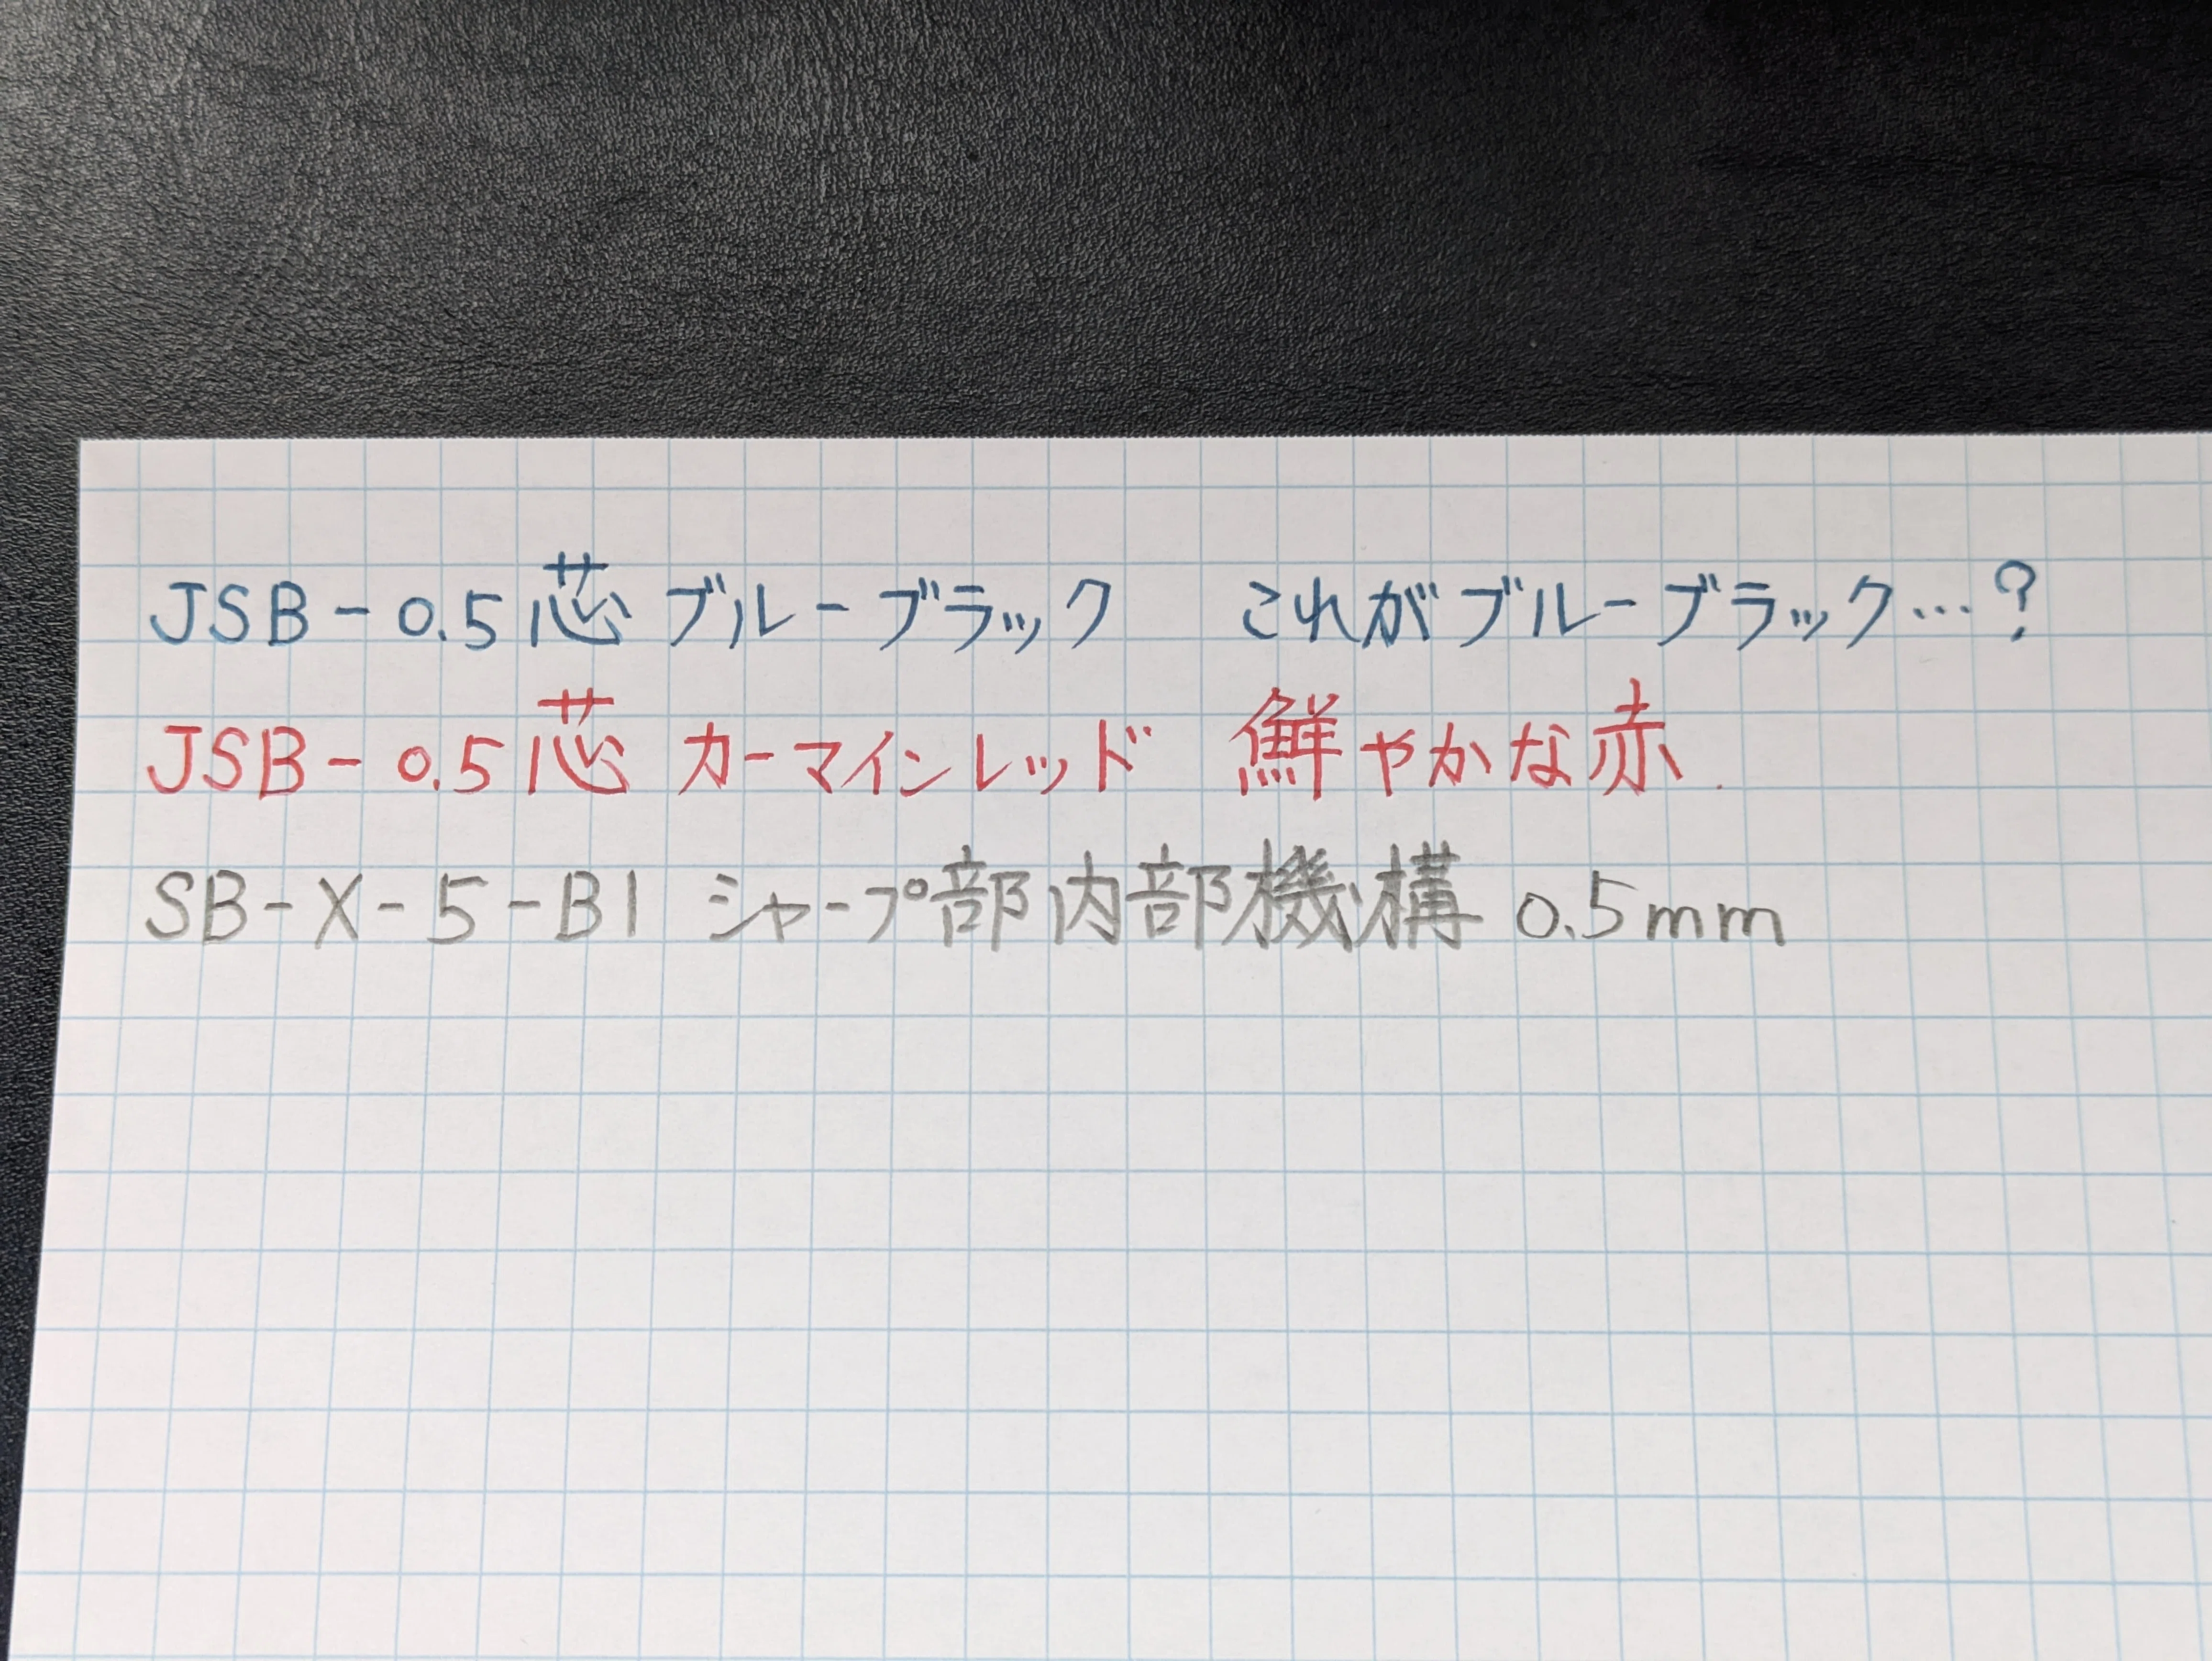 JSB-0.5芯 ブルーブラック　これがブルーブラック…?
JSB-0.5芯 カーマインレッド　鮮やかな赤.
SB-X-5-B1 シャープ部内部機構 0.5mm